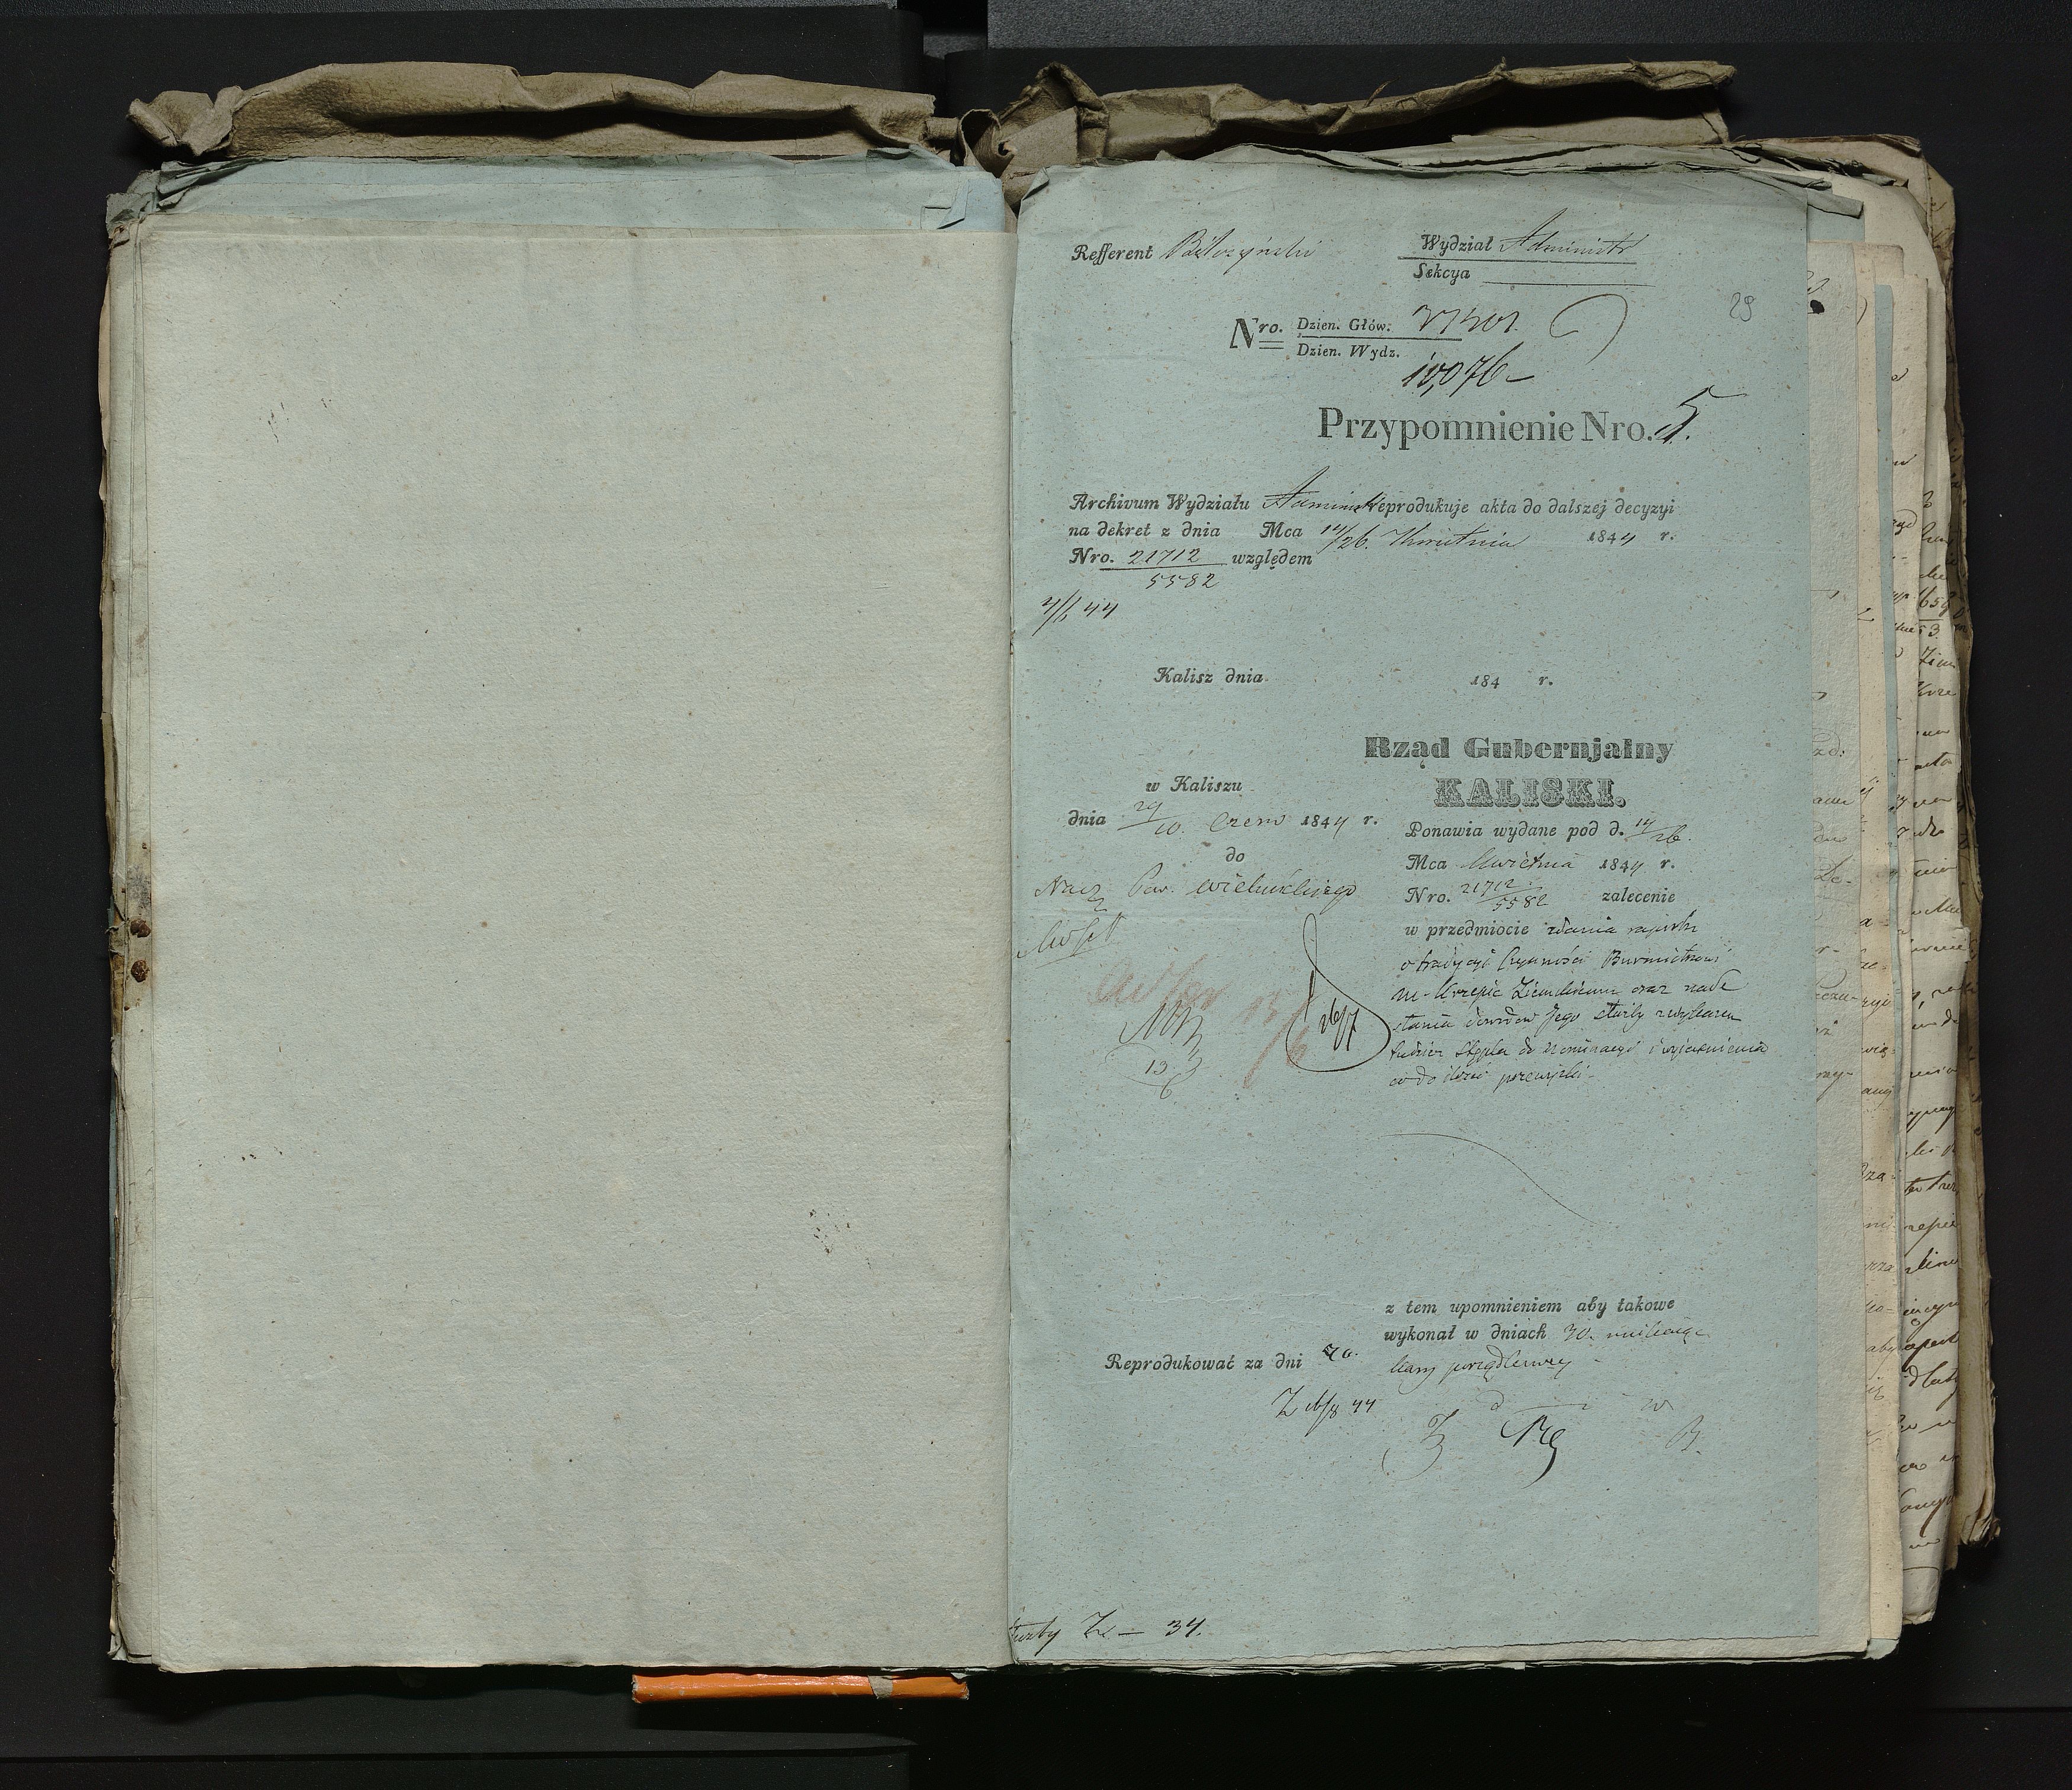 Refferent
Wydział Administr
Sekcya
29
Nro. Dzien. Głów.
Dzien. Wydz.
10,076
Przypomnienie Nro. 5.
Archivum Wydziału Administ Reprodukuje akta do dalszej decyzyi
na dekret z dnia Mca 14/26. Kwietnia 1844 r.
Nro. 21712 względem
5582
4/6 44
Kalisz dnia 184 r.
Rząd Gubernjalny
KALISKI.
w Kaliszu
dnia 29/10. Czerw 1844 r.
do
Nacz Pow. Wieluńskiego
Ponawia wydane pod d. 14/26.
Mca Kwietnia 1844 r.
Nro. 21712/5582 zalecenie
w przedmiocie zdania raportu
o tradycyi czynności Burmistrzowi
M. Krzepic Ziemskiemu oraz nade
słania dowodów Jego służby z wykazem
tudzież stępla do nominacyi i wyjaśnienia
co do
13/6
26/7
z tem upomnieniem aby takowe
wykonał w dniach 30. uniknąć
kary porządkowey
Reprodukować za dni 40.
służby Zł — 34.